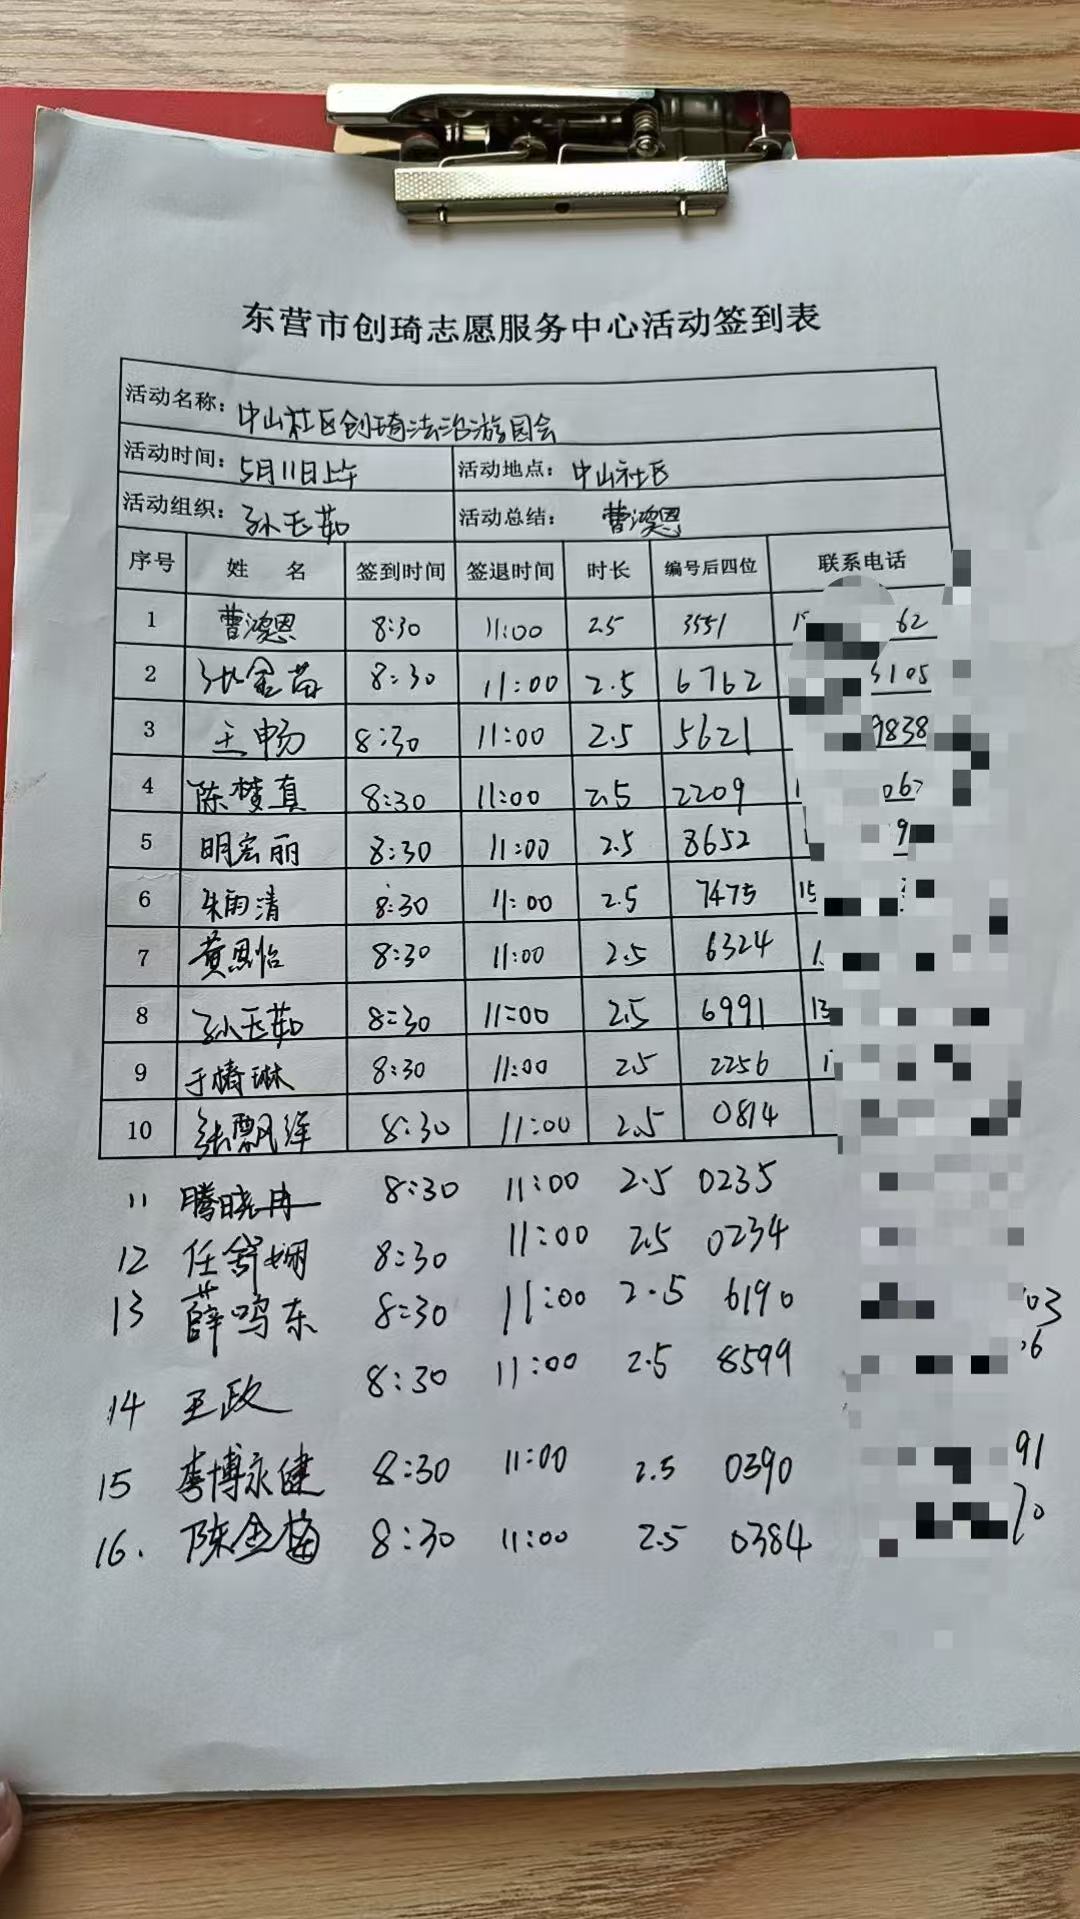 东营市创琦志愿服务中心活动签到表
活动名称：中山社区创琦法治游园会
活动时间：5月11日上午 活动地点：中山社区
活动组织：孙玉茹 活动总结：曹鸿恩
序号 姓 名 签到时间 签退时间 时长 编号后四位 联系电话
1 曹鸿恩 8:30 11:00 2.5 3551 62
2 张金苗 8:30 11:00 2.5 6762 5105
3 王畅 8:30 11:00 2.5 5621 9838
4 陈梦真 8:30 11:00 2.5 2209 1 067
5 明宏丽 8:30 11:00 2.5 8652 9
6 朱雨清 8:30 11:00 2.5 7475 15
7 黄恩怡 8:30 11:00 2.5 6324 1
8 孙玉茹 8:30 11:00 2.5 6991 13
9 于椿琳 8:30 11:00 2.5 2256 1
10 张飘 8:30 11:00 2.5 0814
11 腾晓冉 8:30 11:00 2.5 0235
12 任舒娴 8:30 11:00 2.5 0234
13 薛鸣东 8:30 11:00 2.5 6190 03
14 王政 8:30 11:00 2.5 8599 6
15 李博永健 8:30 11:00 2.5 0390 91
16. 陈金梅 8:30 11:00 2.5 0384 70